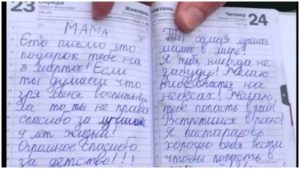 23
Середа
МАМА
Это письмо это
подарок тебе на
8 марта! Если
ты думаешь что
зря меня воспитала
то ты не права
спасибо за лучшие
9 лет жизни!
Огромное спасибо
за детство!!!
Четвер 24
Ты самая лучшая
мама в мире!
Я тебя никогда не
забуду! Желаю
на
небесах! Желаю
тебе попасть в рай!
Встретимся в раю!
Я постараюсь
хорошо себя вести
чтобы попасть в